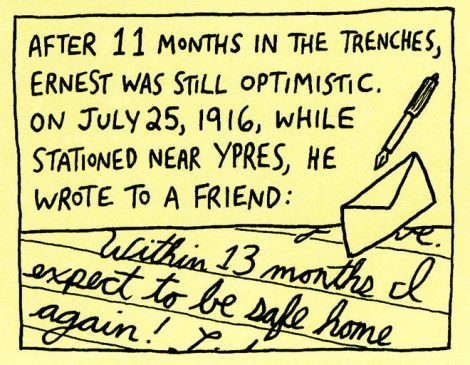 AFTER 11 MONTHS IN THE TRENCHES,
ERNEST WAS STILL OPTIMISTIC.
ON JULY 25, 1916, WHILE
STATIONED NEAR YPRES, HE
WROTE TO A FRIEND:
Within 13 months I
expect to be safe home
again!